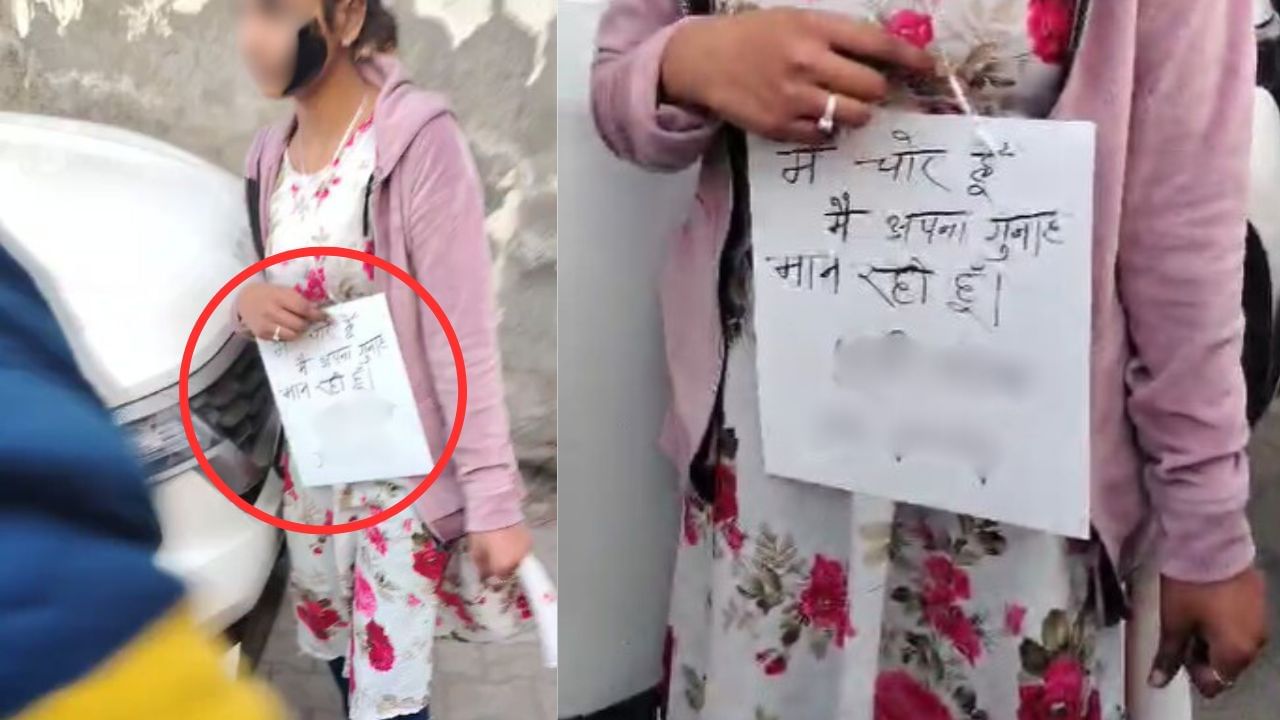 मै चोर हूँ
मै अपना गुनाह
मान रही हूँ।
मै चोर हूँ
मै अपना गुनाह
मान रही हूँ।